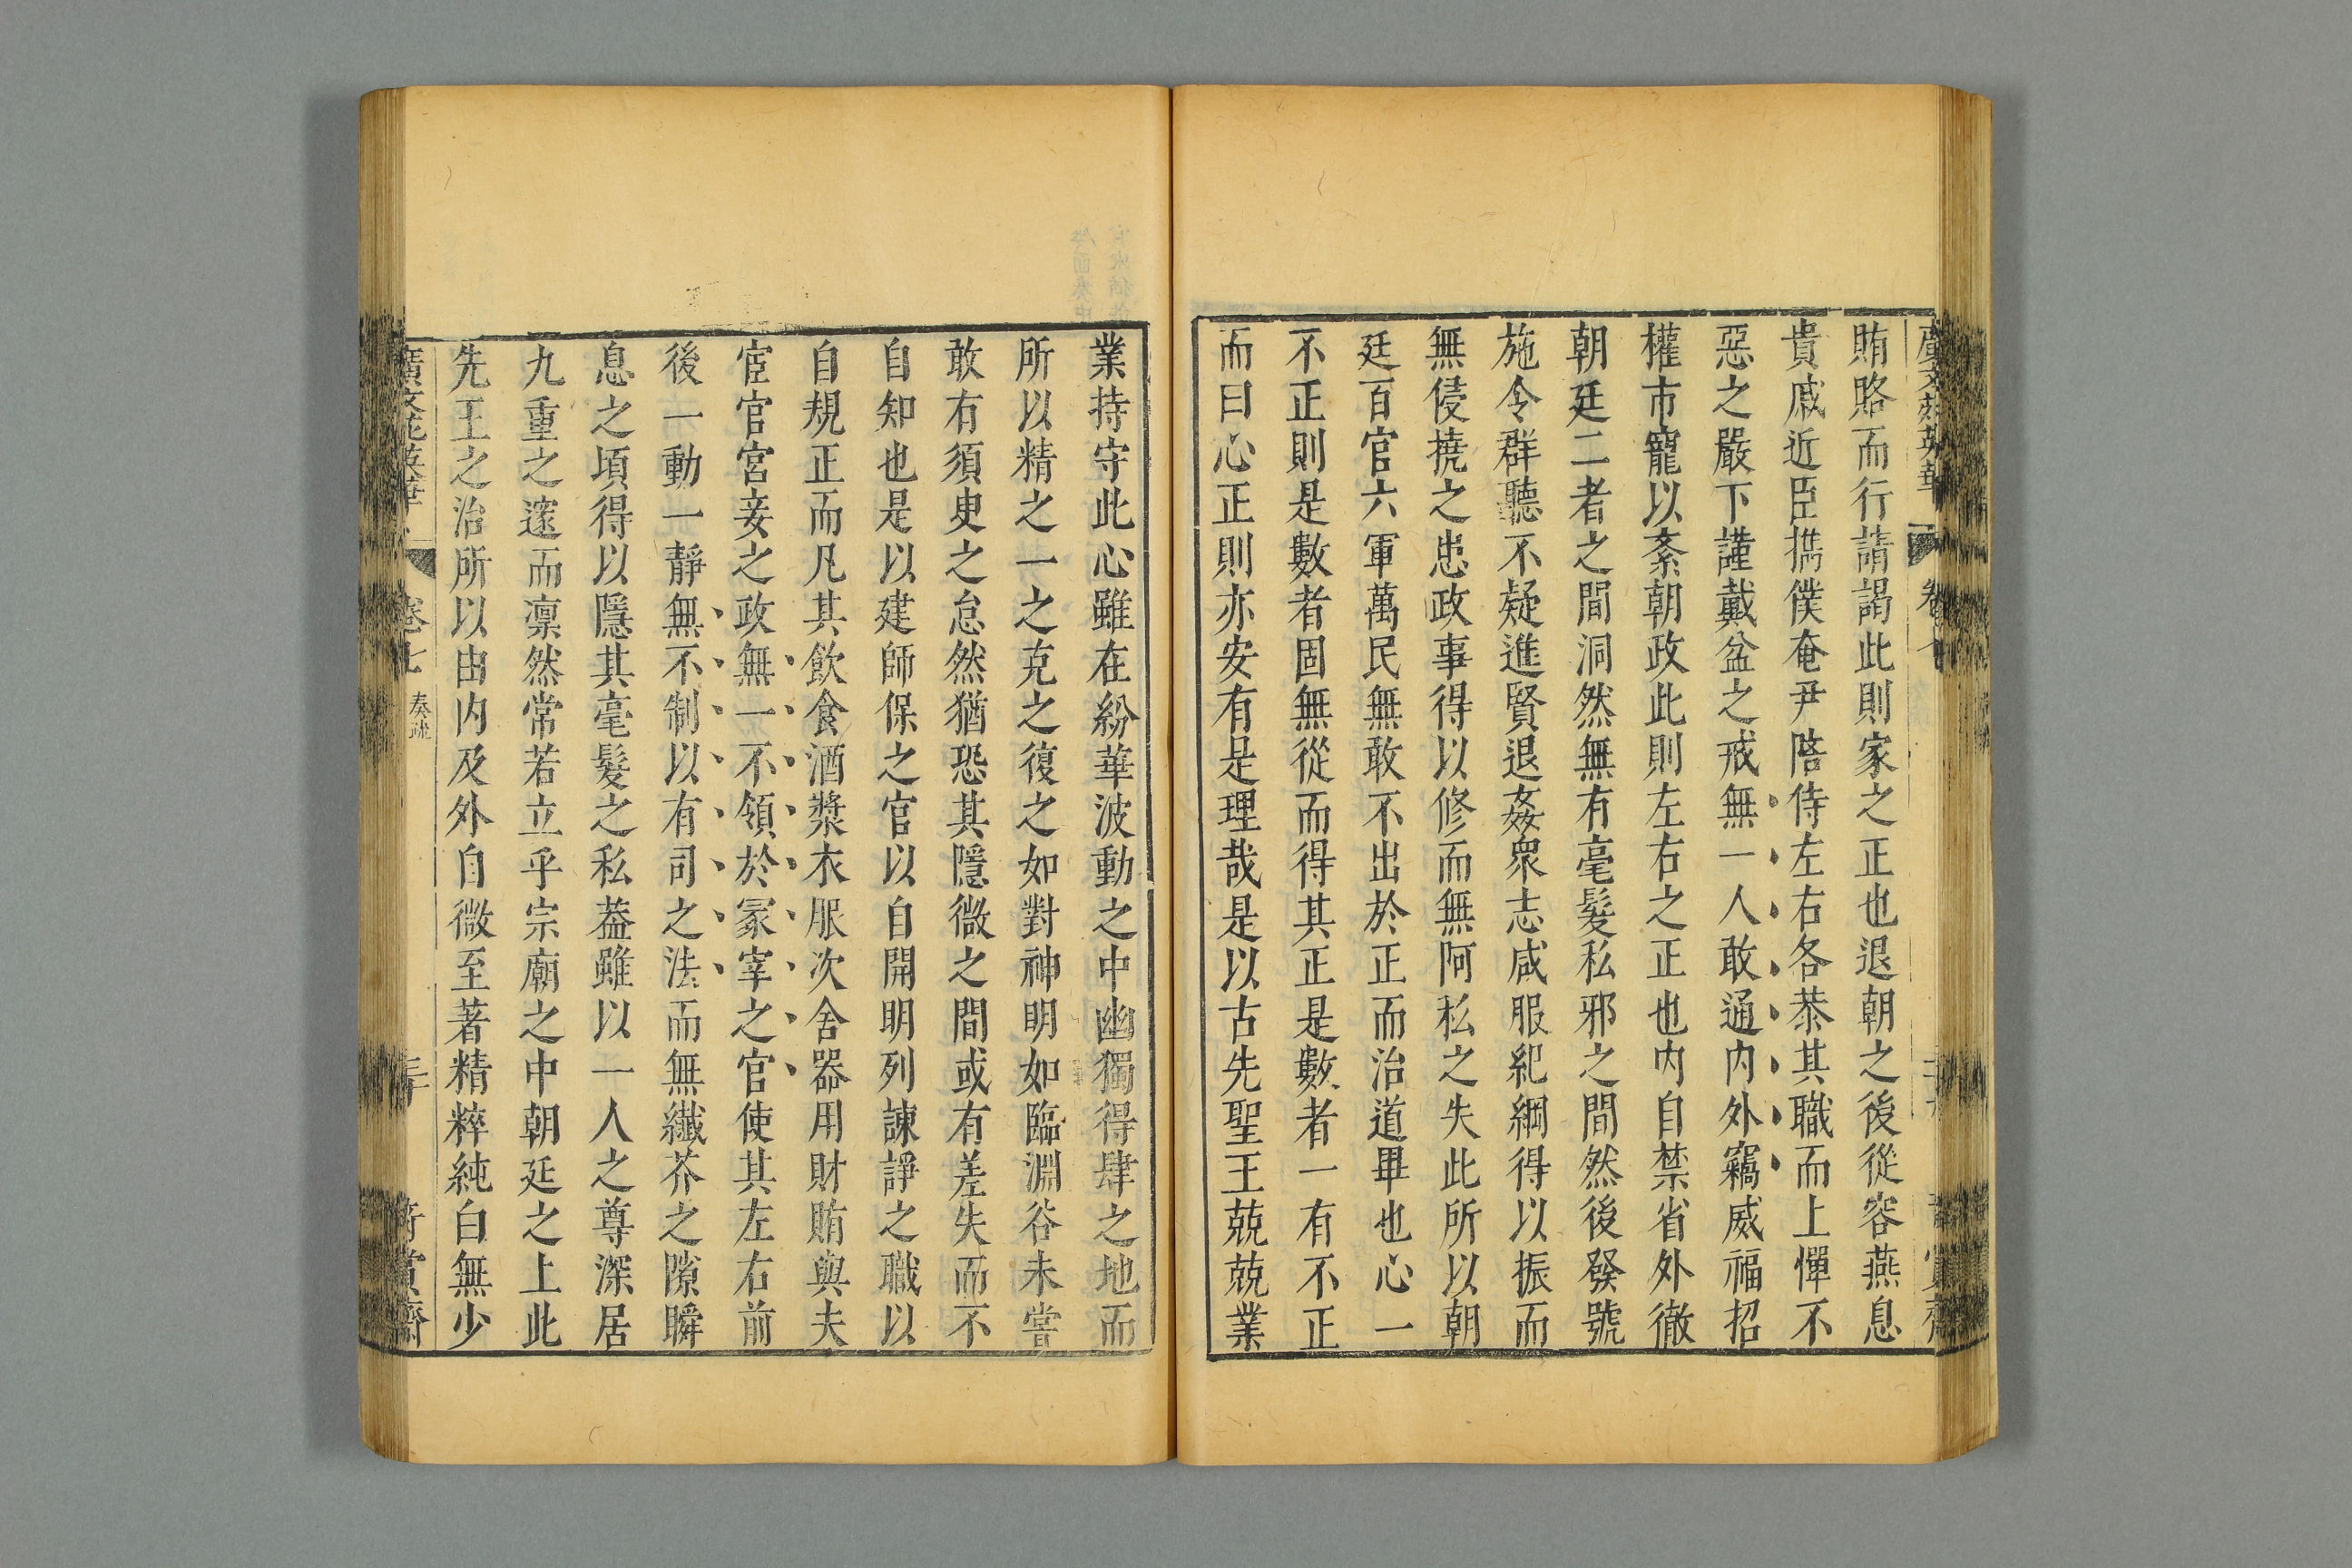 廣文苑英華
卷七
賄賂而行請謁此則家之正也退朝之後從容燕息
貴戚近臣攜僕奄尹陪侍左右各恭其職而上憚不
惡之嚴下謹戴盆之戒無一人敢通內外竊威福招
權市寵以紊朝政此則左右之正也內自禁省外徹
朝廷二者之間洞然無有毫髮私邪之間然後發號
施令群聽不疑進賢退姦衆志咸服紀綱得以振而
無侵撓之患政事得以修而無阿私之失此所以朝
廷百官六軍萬民無敢不出於正而治道畢也心一
不正則是數者固無從而得其正是數者一有不正
而曰心正則亦安有是理哉是以古先聖王兢兢業
業持守此心雖在紛華波動之中幽獨得肆之地而
所以精之一之克之復之如對神明如臨淵谷未嘗
敢有須臾之怠然猶恐其隱微之間或有差失而不
自知也是以建師保之官以自開明列諫諍之職以
自規正而凡其飲食酒漿衣服次舍器用財賄與夫
宦官宮妾之政無一不領於冢宰之官使其左右前
後一動一靜無不制以有司之法而無纖芥之隙瞬
息之頃得以隱其毫髮之私葢雖以一人之尊深居
九重之邃而凛然常若立乎宗廟之中朝廷之上此
先王之治所以由內及外自微至著精粹純白無少
廣文苑英華
卷七
奏疏
三十
奇賞齋